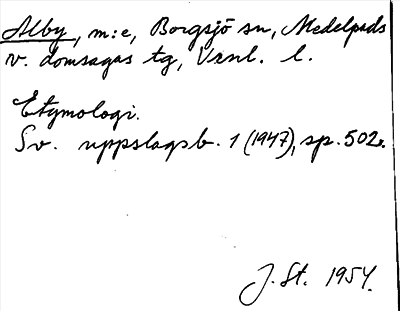 Alby, m:e, Borgsjö sn, Medelpads
v. domsagas tg, Vrnl. l.
Etymologi.
Sv. uppslagsb. 1 (1947), sp. 502.
J. St. 1954.